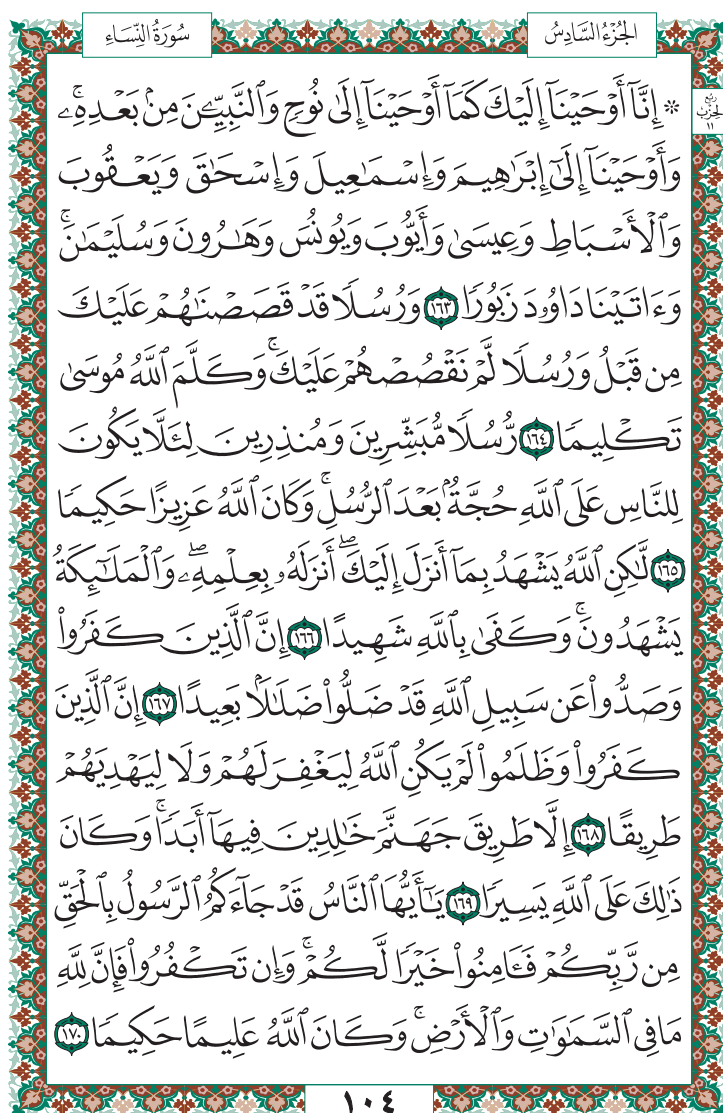 الجُزْءُ السَّادِسُ
سُورَةُ النِّسَاءِ
رُبْعُ الحِزْبِ ١١
۞ إِنَّآ أَوْحَيْنَآ إِلَيْكَ كَمَآ أَوْحَيْنَآ إِلَىٰ نُوحٍ وَٱلنَّبِيِّـۧنَ مِنۢ بَعْدِهِۦۚ
وَأَوْحَيْنَآ إِلَىٰٓ إِبْرَٰهِيمَ وَإِسْمَٰعِيلَ وَإِسْحَٰقَ وَيَعْقُوبَ
وَٱلْأَسْبَاطِ وَعِيسَىٰ وَأَيُّوبَ وَيُونُسَ وَهَٰرُونَ وَسُلَيْمَٰنَۚ
وَءَاتَيْنَا دَاوُۥدَ زَبُورًا ١٦٣ وَرُسُلًا قَدْ قَصَصْنَٰهُمْ عَلَيْكَ
مِن قَبْلُ وَرُسُلًا لَّمْ نَقْصُصْهُمْ عَلَيْكَۚ وَكَلَّمَ ٱللَّهُ مُوسَىٰ
تَكْلِيمًا ١٦٤ رُّسُلًا مُّبَشِّرِينَ وَمُنذِرِينَ لِئَلَّا يَكُونَ
لِلنَّاسِ عَلَى ٱللَّهِ حُجَّةٌۢ بَعْدَ ٱلرُّسُلِۚ وَكَانَ ٱللَّهُ عَزِيزًا حَكِيمًا
١٦٥ لَّٰكِنِ ٱللَّهُ يَشْهَدُ بِمَآ أَنزَلَ إِلَيْكَۖ أَنزَلَهُۥ بِعِلْمِهِۦۖ وَٱلْمَلَٰٓئِكَةُ
يَشْهَدُونَۚ وَكَفَىٰ بِٱللَّهِ شَهِيدًا ١٦٦ إِنَّ ٱلَّذِينَ كَفَرُوا۟
وَصَدُّوا۟ عَن سَبِيلِ ٱللَّهِ قَدْ ضَلُّوا۟ ضَلَٰلًۢا بَعِيدًا ١٦٧ إِنَّ ٱلَّذِينَ
كَفَرُوا۟ وَظَلَمُوا۟ لَمْ يَكُنِ ٱللَّهُ لِيَغْفِرَ لَهُمْ وَلَا لِيَهْدِيَهُمْ
طَرِيقًا ١٦٨ إِلَّا طَرِيقَ جَهَنَّمَ خَٰلِدِينَ فِيهَآ أَبَدًاۚ وَكَانَ
ذَٰلِكَ عَلَى ٱللَّهِ يَسِيرًا ١٦٩ يَٰٓأَيُّهَا ٱلنَّاسُ قَدْ جَآءَكُمُ ٱلرَّسُولُ بِٱلْحَقِّ
مِن رَّبِّكُمْ فَـَٔامِنُوا۟ خَيْرًا لَّكُمْۚ وَإِن تَكْفُرُوا۟ فَإِنَّ لِلَّهِ
مَا فِى ٱلسَّمَٰوَٰتِ وَٱلْأَرْضِۚ وَكَانَ ٱللَّهُ عَلِيمًا حَكِيمًا ١٧٠
١٠٤